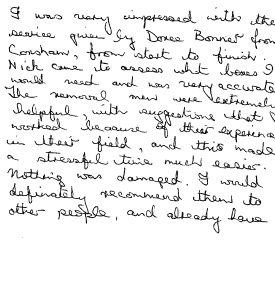 I was very impressed with the
service given by Doree Bonner from
Corsham, from start to finish.
Nick came to assess what boxes I
would need and was very accurate
The removal men were extremely
helpful, with suggestions that
worked because of their experience
in their field, and this made
a stressful time much easier.
Nothing was damaged. I would
definately recommend them to
other people, and already have